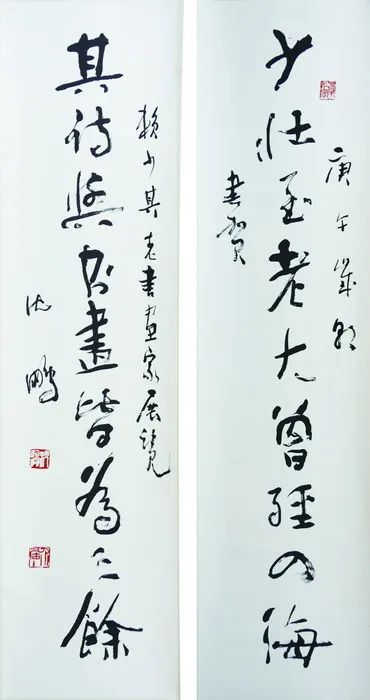 庚午歲
少壮至老大曾經四海
書賀
賴少其老書画家展覽
其詩與書畫皆為三餘
沈鵬